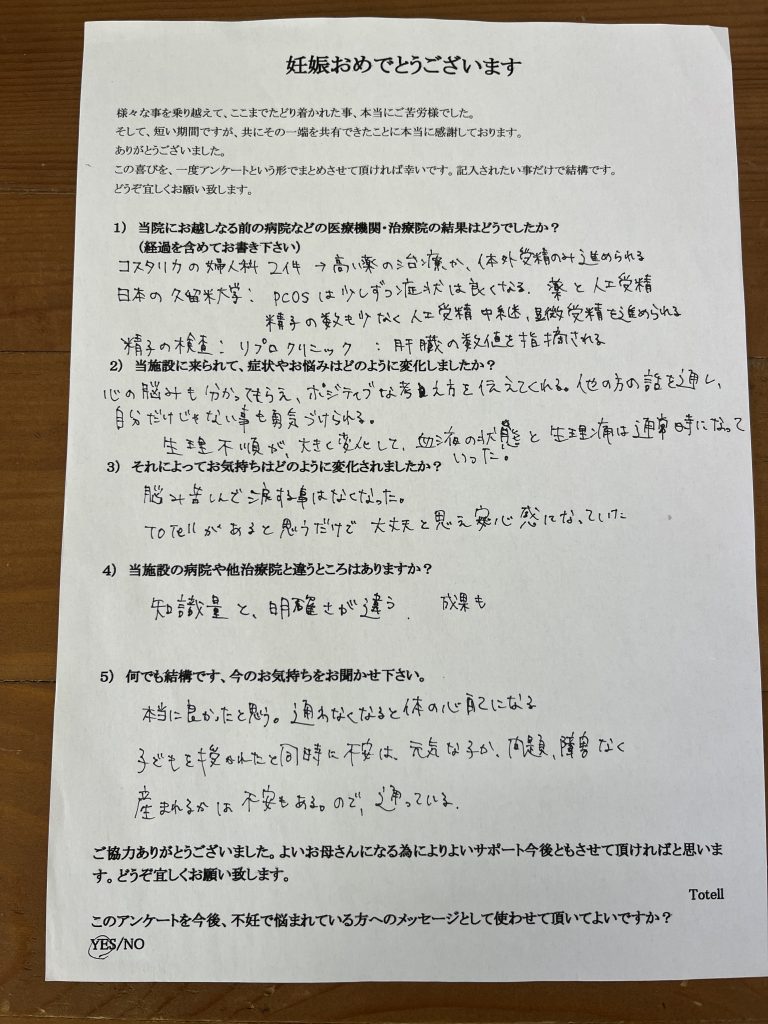 妊娠おめでとうございます
様々な事を乗り越えて、ここまでたどり着かれた事、本当にご苦労様でした。
そして、短い期間ですが、共にその一端を共有できたことに本当に感謝しております。
ありがとうございました。
この喜びを、一度アンケートという形でまとめさせて頂ければ幸いです。記入されたい事だけで結構です。
どうぞ宜しくお願い致します。
1) 当院にお越しなる前の病院などの医療機関・治療院の結果はどうでしたか?
(経過を含めてお書き下さい)
コスタリカの婦人科 2件 → 高い薬の治療か、体外受精のみ進められる
日本の久留米大学: PCOSは少しずつ症状は良くなる. 薬と人工受精
精子の数も少なく人工受精中 顕微受精を進められる
精子の検査: リプロクリニック : 肝臓の数値を指摘される
2) 当施設に来られて、症状やお悩みはどのように変化しましたか?
心の脳みも分かってもらえ、ポジティブな考え方を伝えてくれる。他の方の話を通し、
自分だけじゃない事も勇気づけられる。
生理不順が、大きく変化して、血液の状態と生理痛は通常時になって
いった。
3) それによってお気持ちはどのように変化されましたか?
脳み苦しんで涙する事はなくなった。
TOTellがあると思うだけで 大丈夫と思え安心感になっていた
4) 当施設の病院や他治療院と違うところはありますか?
知識量と、明確さが違う. 成果も
5) 何でも結構です、今のお気持ちをお聞かせ下さい。
本当に良かったと思う。通わなくなると体の心配になる
子どもを授かれたと同時に不安は、元気な子か、問題、障害なく
産まれるかは不安もある。ので、通っている.
ご協力ありがとうございました。よいお母さんになる為によりよいサポート今後ともさせて頂ければと思いま
す。どうぞ宜しくお願い致します。
Totell
このアンケートを今後、不妊で悩まれている方へのメッセージとして使わせて頂いてよいですか?
YES/NO